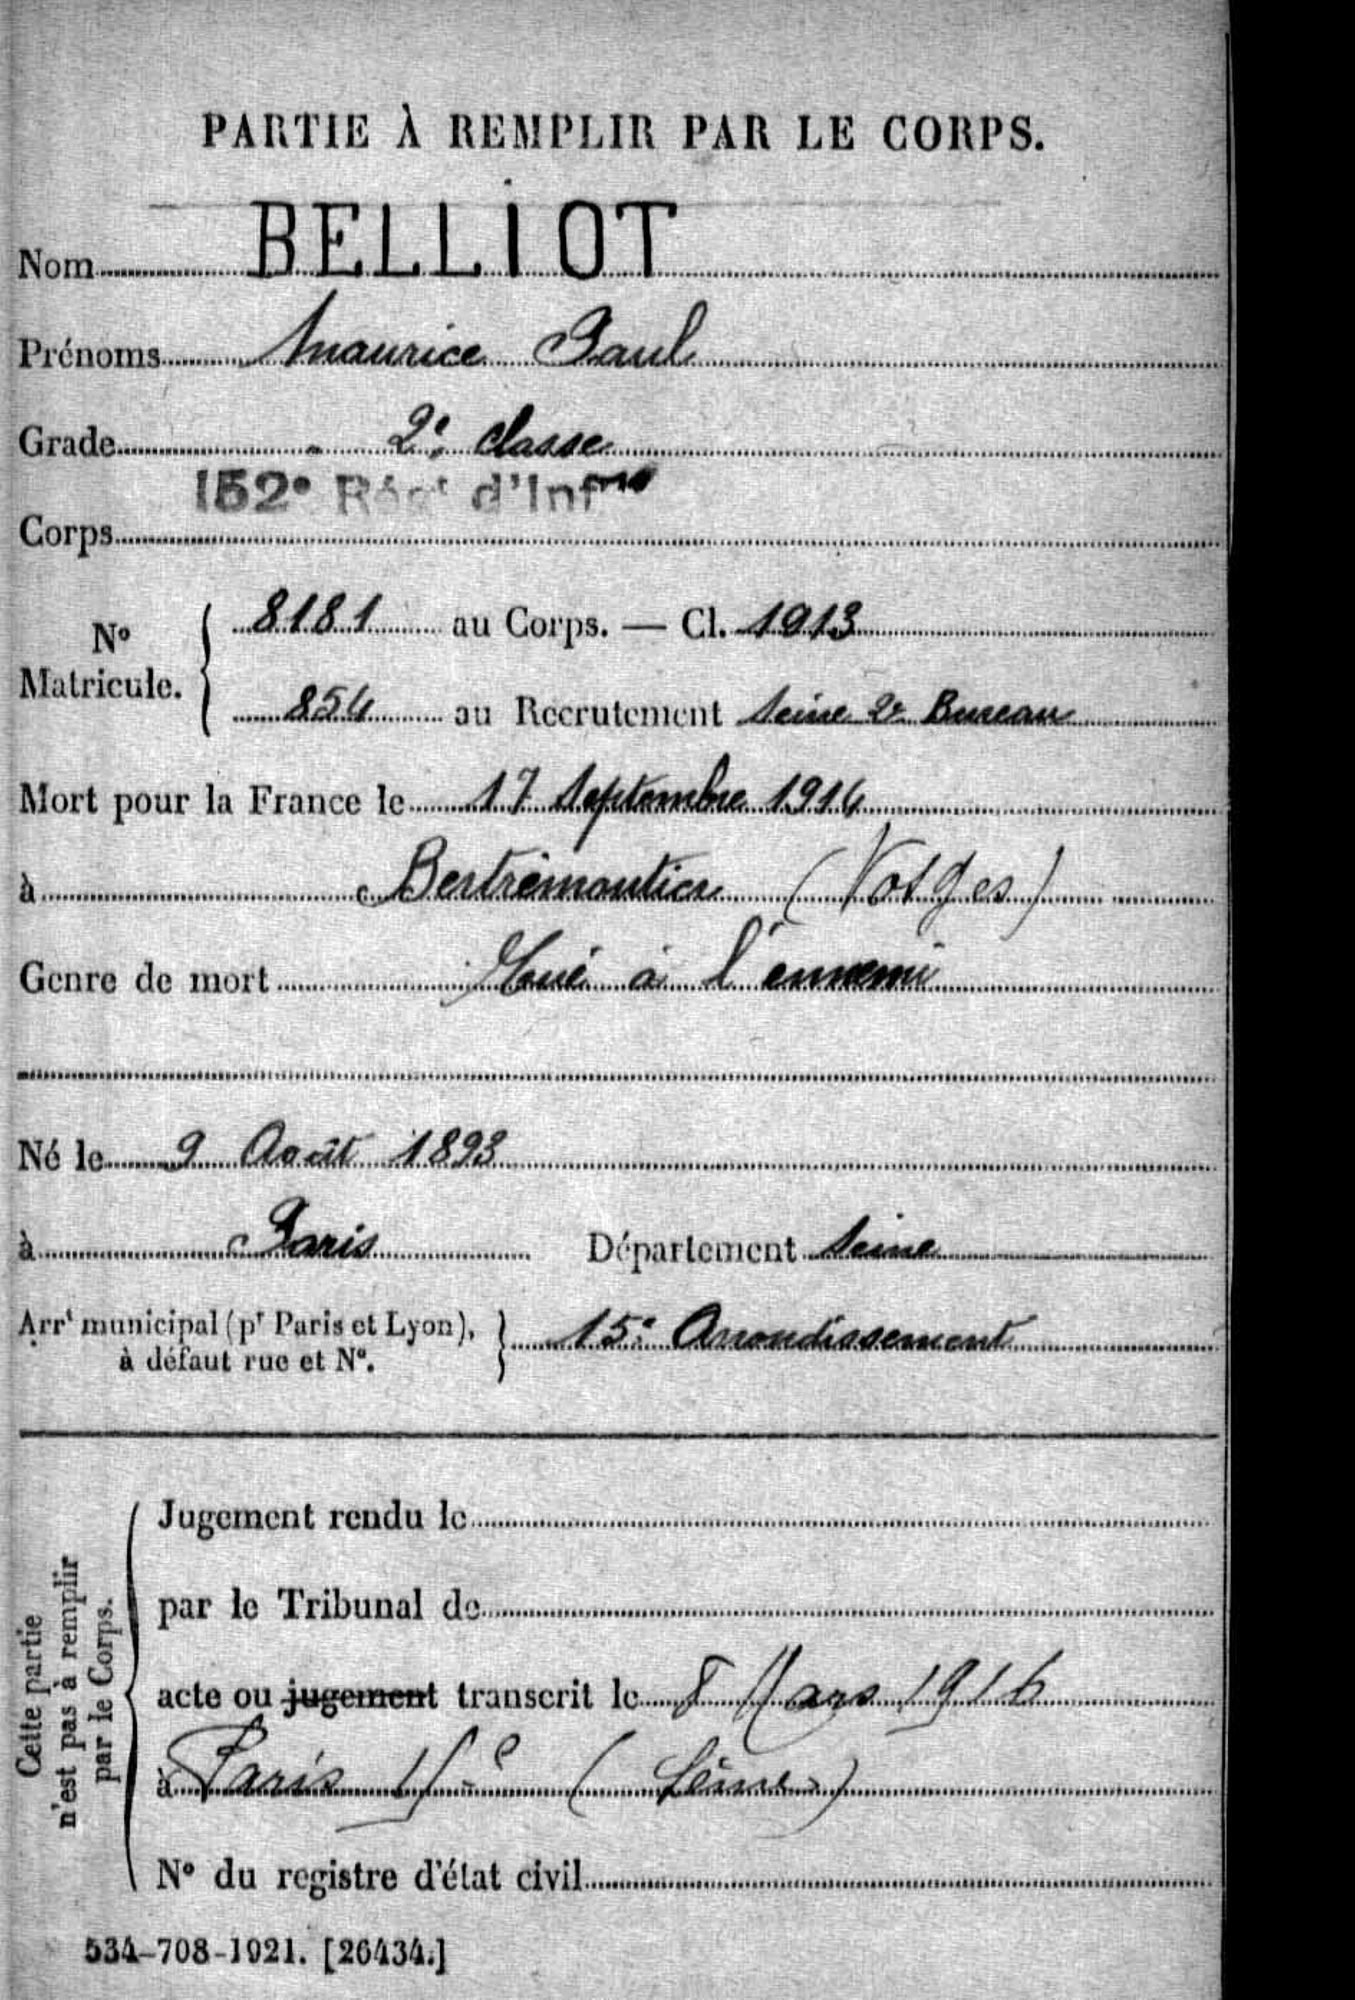 PARTIE À REMPLIR PAR LE CORPS.
Nom BELLIOT
Prénoms Maurice Paul
Grade 2e classe
152e Régt d'Infie
Corps
N° Matricule. 8181 au Corps. — Cl. 1913
854 au Recrutement Seine 2e Bureau
Mort pour la France le 17 Septembre 1914
à Bertrimoutier (Vosges)
Genre de mort Tué à l'ennemi
Né le 9 Août 1893
à Paris Département Seine
Arrt municipal (pr Paris et Lyon), à défaut rue et N°. 15e Arrondissement
Cette partie n'est pas à remplir par le Corps.
Jugement rendu le
par le Tribunal de
acte ou jugement transcrit le 8 Mars 1916
à Paris 15e (Seine)
N° du registre d'état civil
534-708-1921. [26434.]